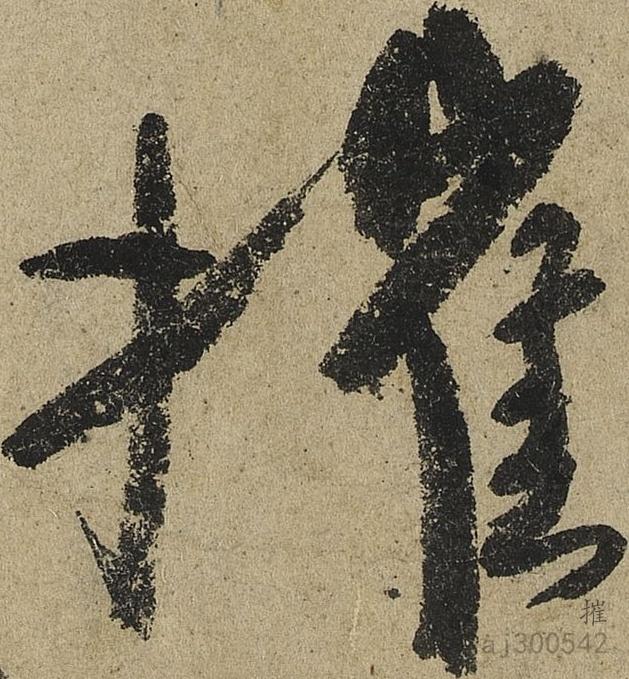 摧
摧
aj300542